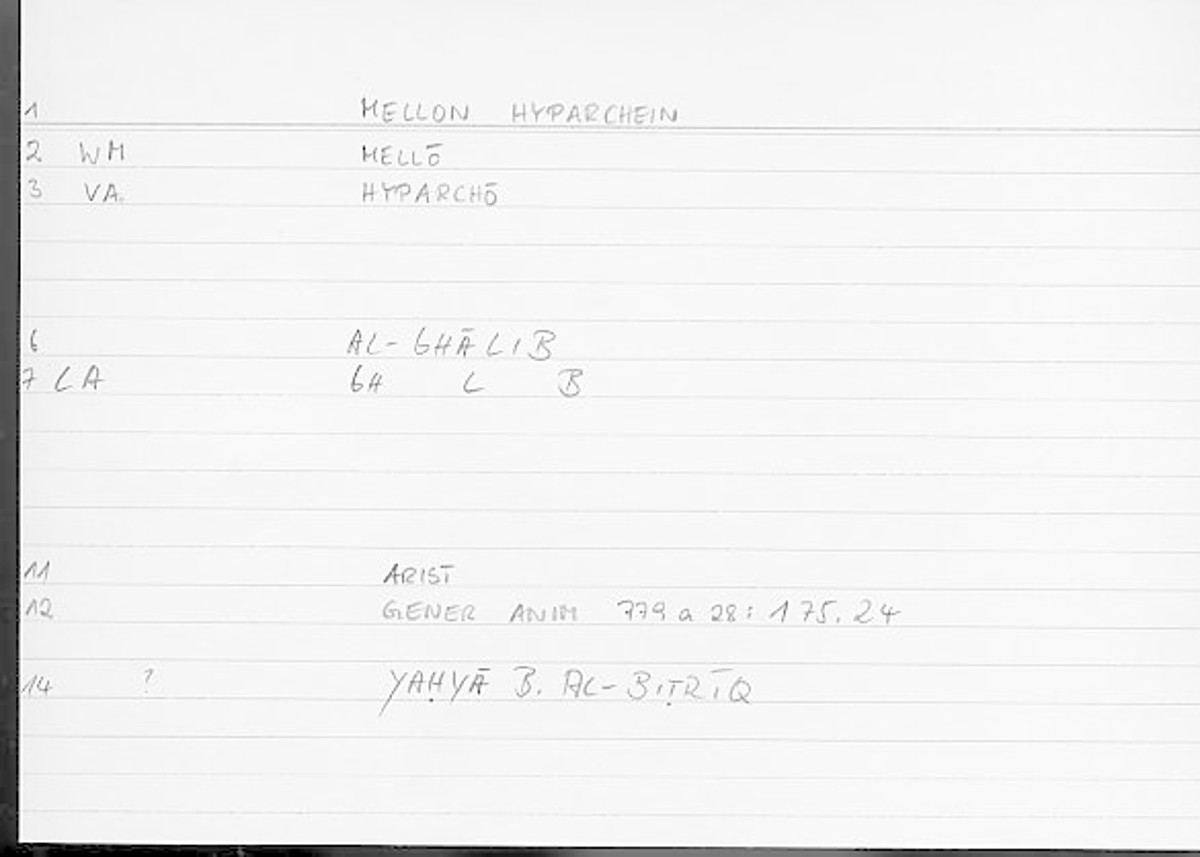 1 MELLON HYPARCHEIN
2 WM MELLŌ
3 VA. HYPARCHŌ
6 AL-GHĀLIB
7 LA GH L B
11 ARIST
12 GENER ANIM 779 a 28: 175.24
14 ? YAḤYĀ B. AL-BIṬRĪQ